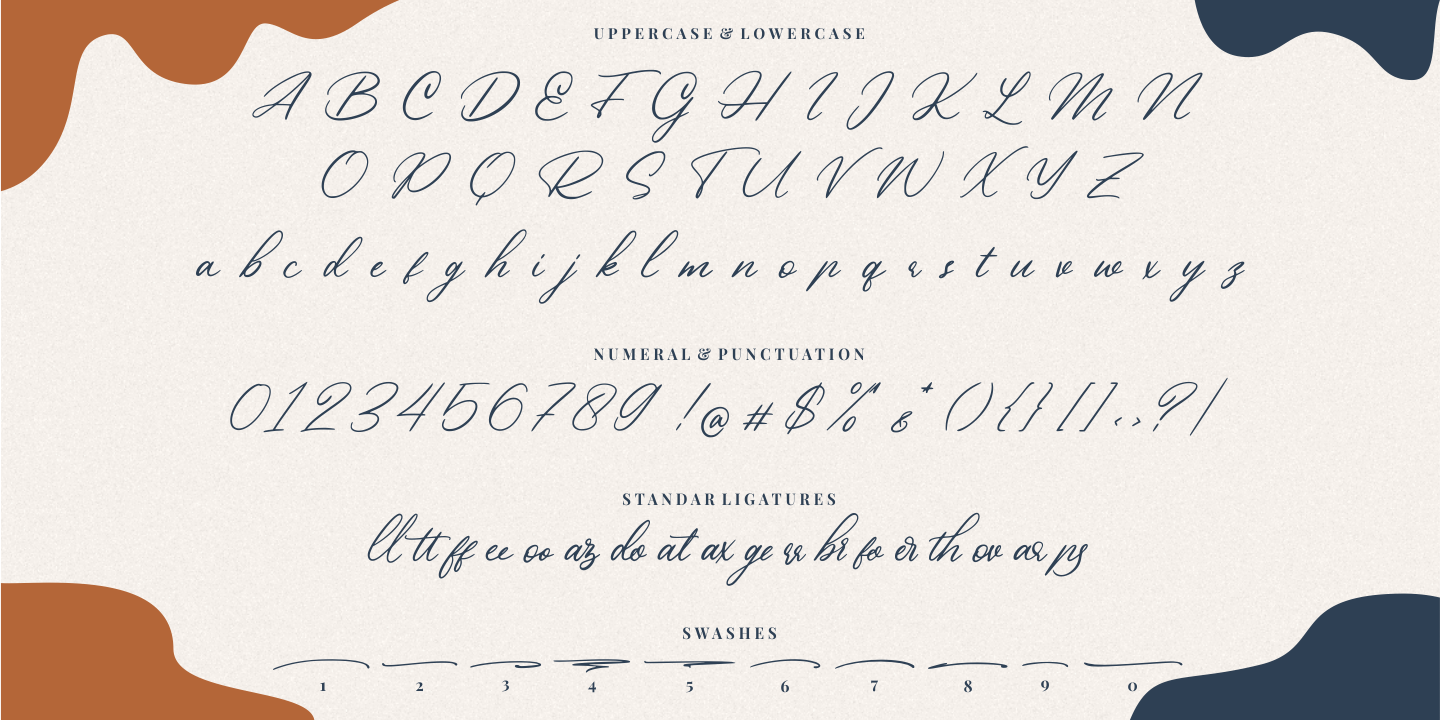 UPPERCASE & LOWERCASE
A B C D E F G H I J K L M N
O P Q R S T U V W X Y Z
a b c d e f g h i j k l m n o p q r s t u v w x y z
NUMERAL & PUNCTUATION
0123456789 !@#$%^&*(){}[]<>?/
STANDAR LIGATURES
ll tt ff ee oo az do at ax ge rr br fo er th ov ar ps
SWASHES
1 2 3 4 5 6 7 8 9 0